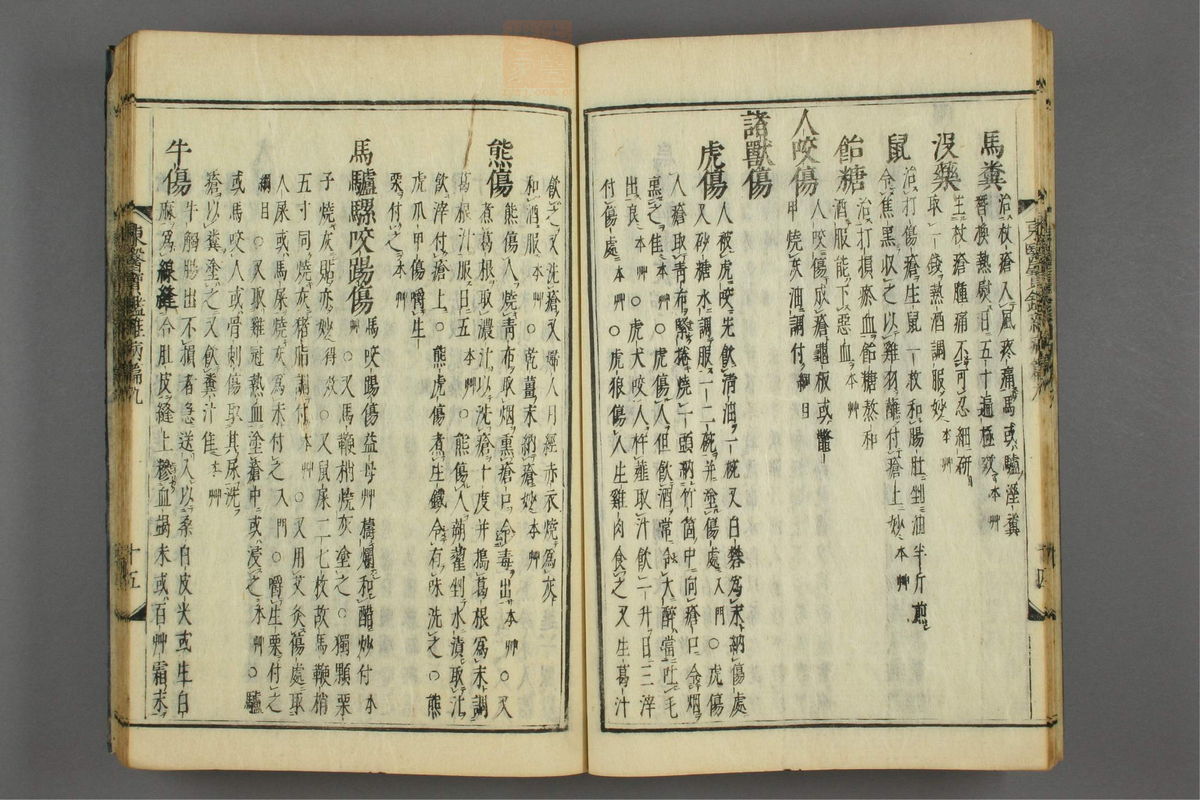 馬糞 治杖瘡入風疼痛馬或驢溼糞
替換熱熨日五十遍極效 本艸
沒藥 主杖瘡腫痛不可忍細研
取一錢熱酒調服妙 本艸
鼠 治打傷瘡生鼠一枚和腸肚剉油半斤煎
令焦黑收之以雞羽蘸付瘡上妙 本艸
飴糖 治打損瘀血飴糖熬和
酒服能下惡血 本艸
人咬傷 人咬傷成瘡龜板或鼈
甲燒灰油調付 綱目
諸獸傷
虎傷 人被虎咬先飲淸油一椀又白礬爲末納傷處
又砂糖水調服一二椀并塗傷處 入門○虎傷
人瘡取靑布緊捲燒一頭納竹筒中向瘡口令烟
熏之佳 本艸○虎傷人但飲酒常令大醉當吐毛
出良 本艸○虎犬咬人杵薤取汁飲一升日三滓
付傷處 本艸○虎狼傷人生雞肉食之又生葛汁
飲之又洗瘡又婦人月經赤衣燒爲灰
和酒服○乾薑末納瘡妙 本艸
熊傷 熊傷人燒靑布取烟熏瘡口令毒出 本艸○又
煮葛根取濃汁以洗瘡十度并搗葛根爲末調
葛根汁服日五 本艸○熊傷人蒴藋剉水漬取汁
飲滓付瘡上○熊虎傷煮生鐵令有味洗之○熊
虎爪甲傷嚼生
栗付之 本艸
馬驢騾咬踢傷 馬咬踢傷益母艸擣爛和醋炒付 本
艸○又馬鞭梢燒灰塗之○獨顆栗
子燒灰貼亦妙 得效○又鼠屎二七枚故馬鞭梢
五寸同燒灰猪脂調付 本艸○又用艾灸傷處取
人屎或馬屎燒灰爲末付之 入門○嚼生栗付之
綱目○又雞冠熱血塗瘡中或浸之 本艸○驢
或馬咬人或骨刺傷取其尿洗
瘡以糞塗之又飲糞汁佳 本艸
牛傷 牛觸腸出不損者急送入以桑白皮尖或生白
麻爲線縫合肚皮縫上糝血竭末或百艸霜末
東醫寶鑑雜病篇九 十四
東醫寶鑑雜病篇九 十五